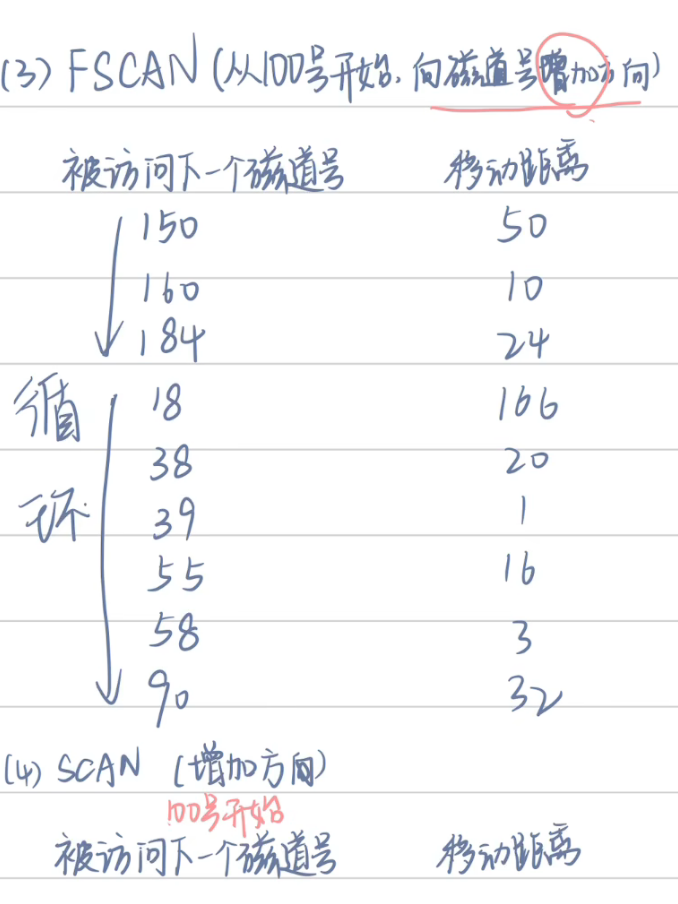 (3) FSCAN (从100号开始, 向磁道号增加方向)
被访问下一个磁道号 移动距离
150 50
160 10
184 24
18 166
循 38 20
环 39 1
55 16
58 3
90 32
(4) SCAN (增加方向)
100号开始
被访问下一个磁道号 移动距离